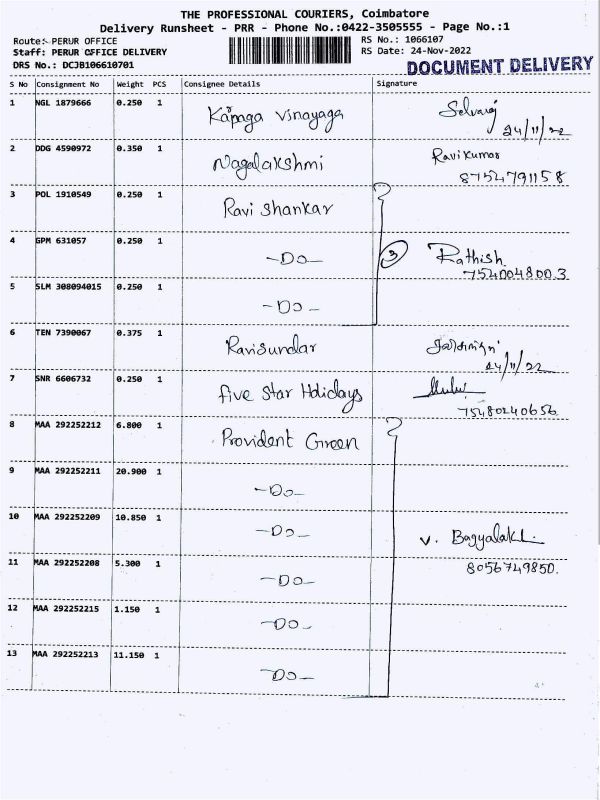 THE PROFESSIONAL COURIERS, Coimbatore
Delivery Runsheet - PRR - Phone No.:0422-3505555 - Page No.:1
Route:- PERUR OFFICE
RS No.: 1066107
Staff: PERUR OFFICE DELIVERY
RS Date: 24-Nov-2022
DRS No.: DCJB106610701
DOCUMENT DELIVERY
S No Consignment No Weight PCS Consignee Details Signature
1 NGL 1879666 0.250 1 Kapaga Vinayaga Selvaraj
24/11/22
2 DDG 4590972 0.350 1 Nagalakshmi Ravikumar
8754791158
3 POL 1910549 0.250 1 Ravi Shankar
4 GPM 631057 0.250 1 -Do- 3 Rathish
7540048003
5 SLM 308094015 0.250 1 -Do-
6 TEN 7390067 0.375 1 Ravisundar
24/11/22
7 SNR 6606732 0.250 1 five Star Holidays
75480240656
8 MAA 292252212 6.800 1 Provident Green
9 MAA 292252211 20.900 1 -Do-
10 MAA 292252209 10.850 1 -Do- V. Bagyalak
11 MAA 292252208 5.300 1 -Do- 8056749850.
12 MAA 292252215 1.150 1 -Do-
13 MAA 292252213 11.150 1 -Do-